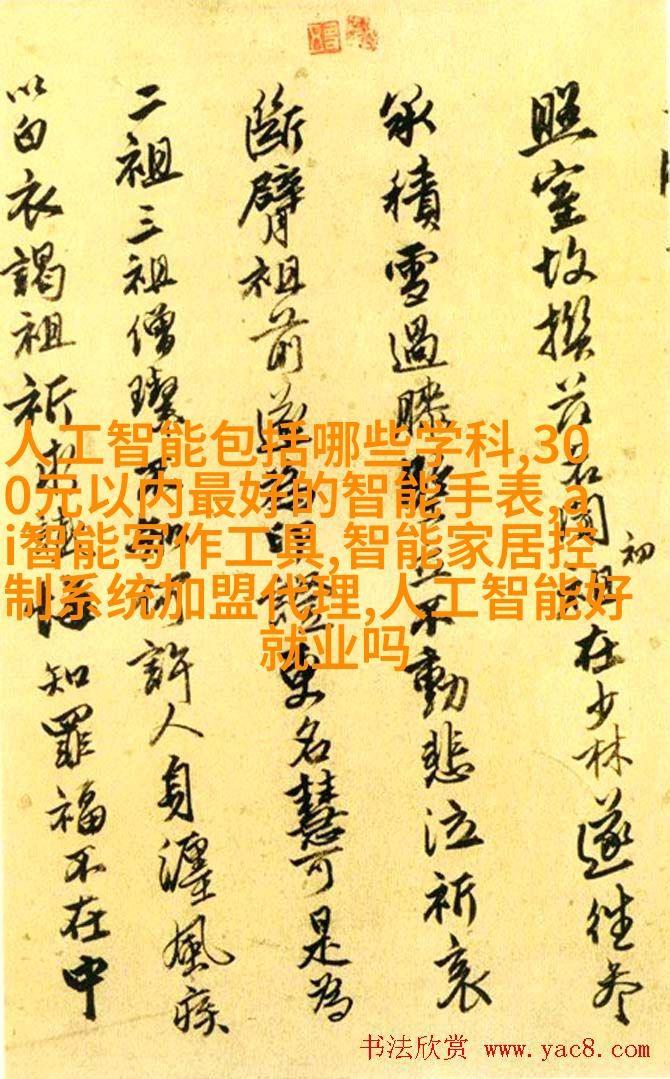 照室故撰茲名聞初祖在少林遂往參
承積雪過膝堅立不動悲泣祈哀
斷臂祖前遂更名慧可是為
二祖三祖僧璨不知何許人身纏風疾
以白衣謁祖祈求懺悔知罪福不在中
人工智能包括哪些学科,30
0元以内最好的智能手表,a
i智能写作工具,智能家居控
制系统加盟代理,人工智能好
就业吗
书法欣赏 www.yac8.com